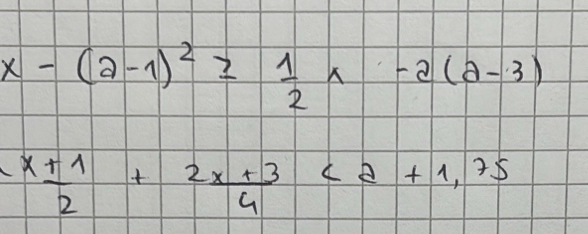 x - (a-1)² ≥ 1/2 x -a(a-3)
(x+1)/2 + (2x+3)/4 < a + 1,75